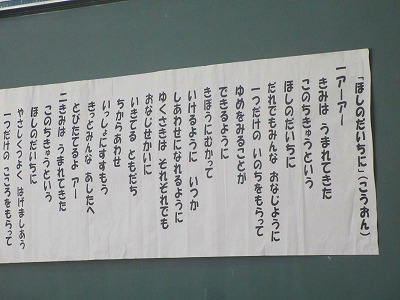 「ほしのだいちに」(こうおん)
一アーアー
きみは うまれてきた
このちきゅうという
ほしのだいちに
だれでもみんな おなじように
一つだけの いのちをもらって
ゆめをみることが
できるように
きぼうにむかって
いけるように いつか
しあわせになれるように
ゆくさきは それぞれでも
おなじせかいに
いきてる ともだち
ちからあわせ
いっしょにすすもう
きっとみんな あしたへ
とびたてるよ アー
二きみは うまれてきた
このちきゅうという
ほしのだいちに
やさしくつよく はげましあう
一つだけの こころをもらって